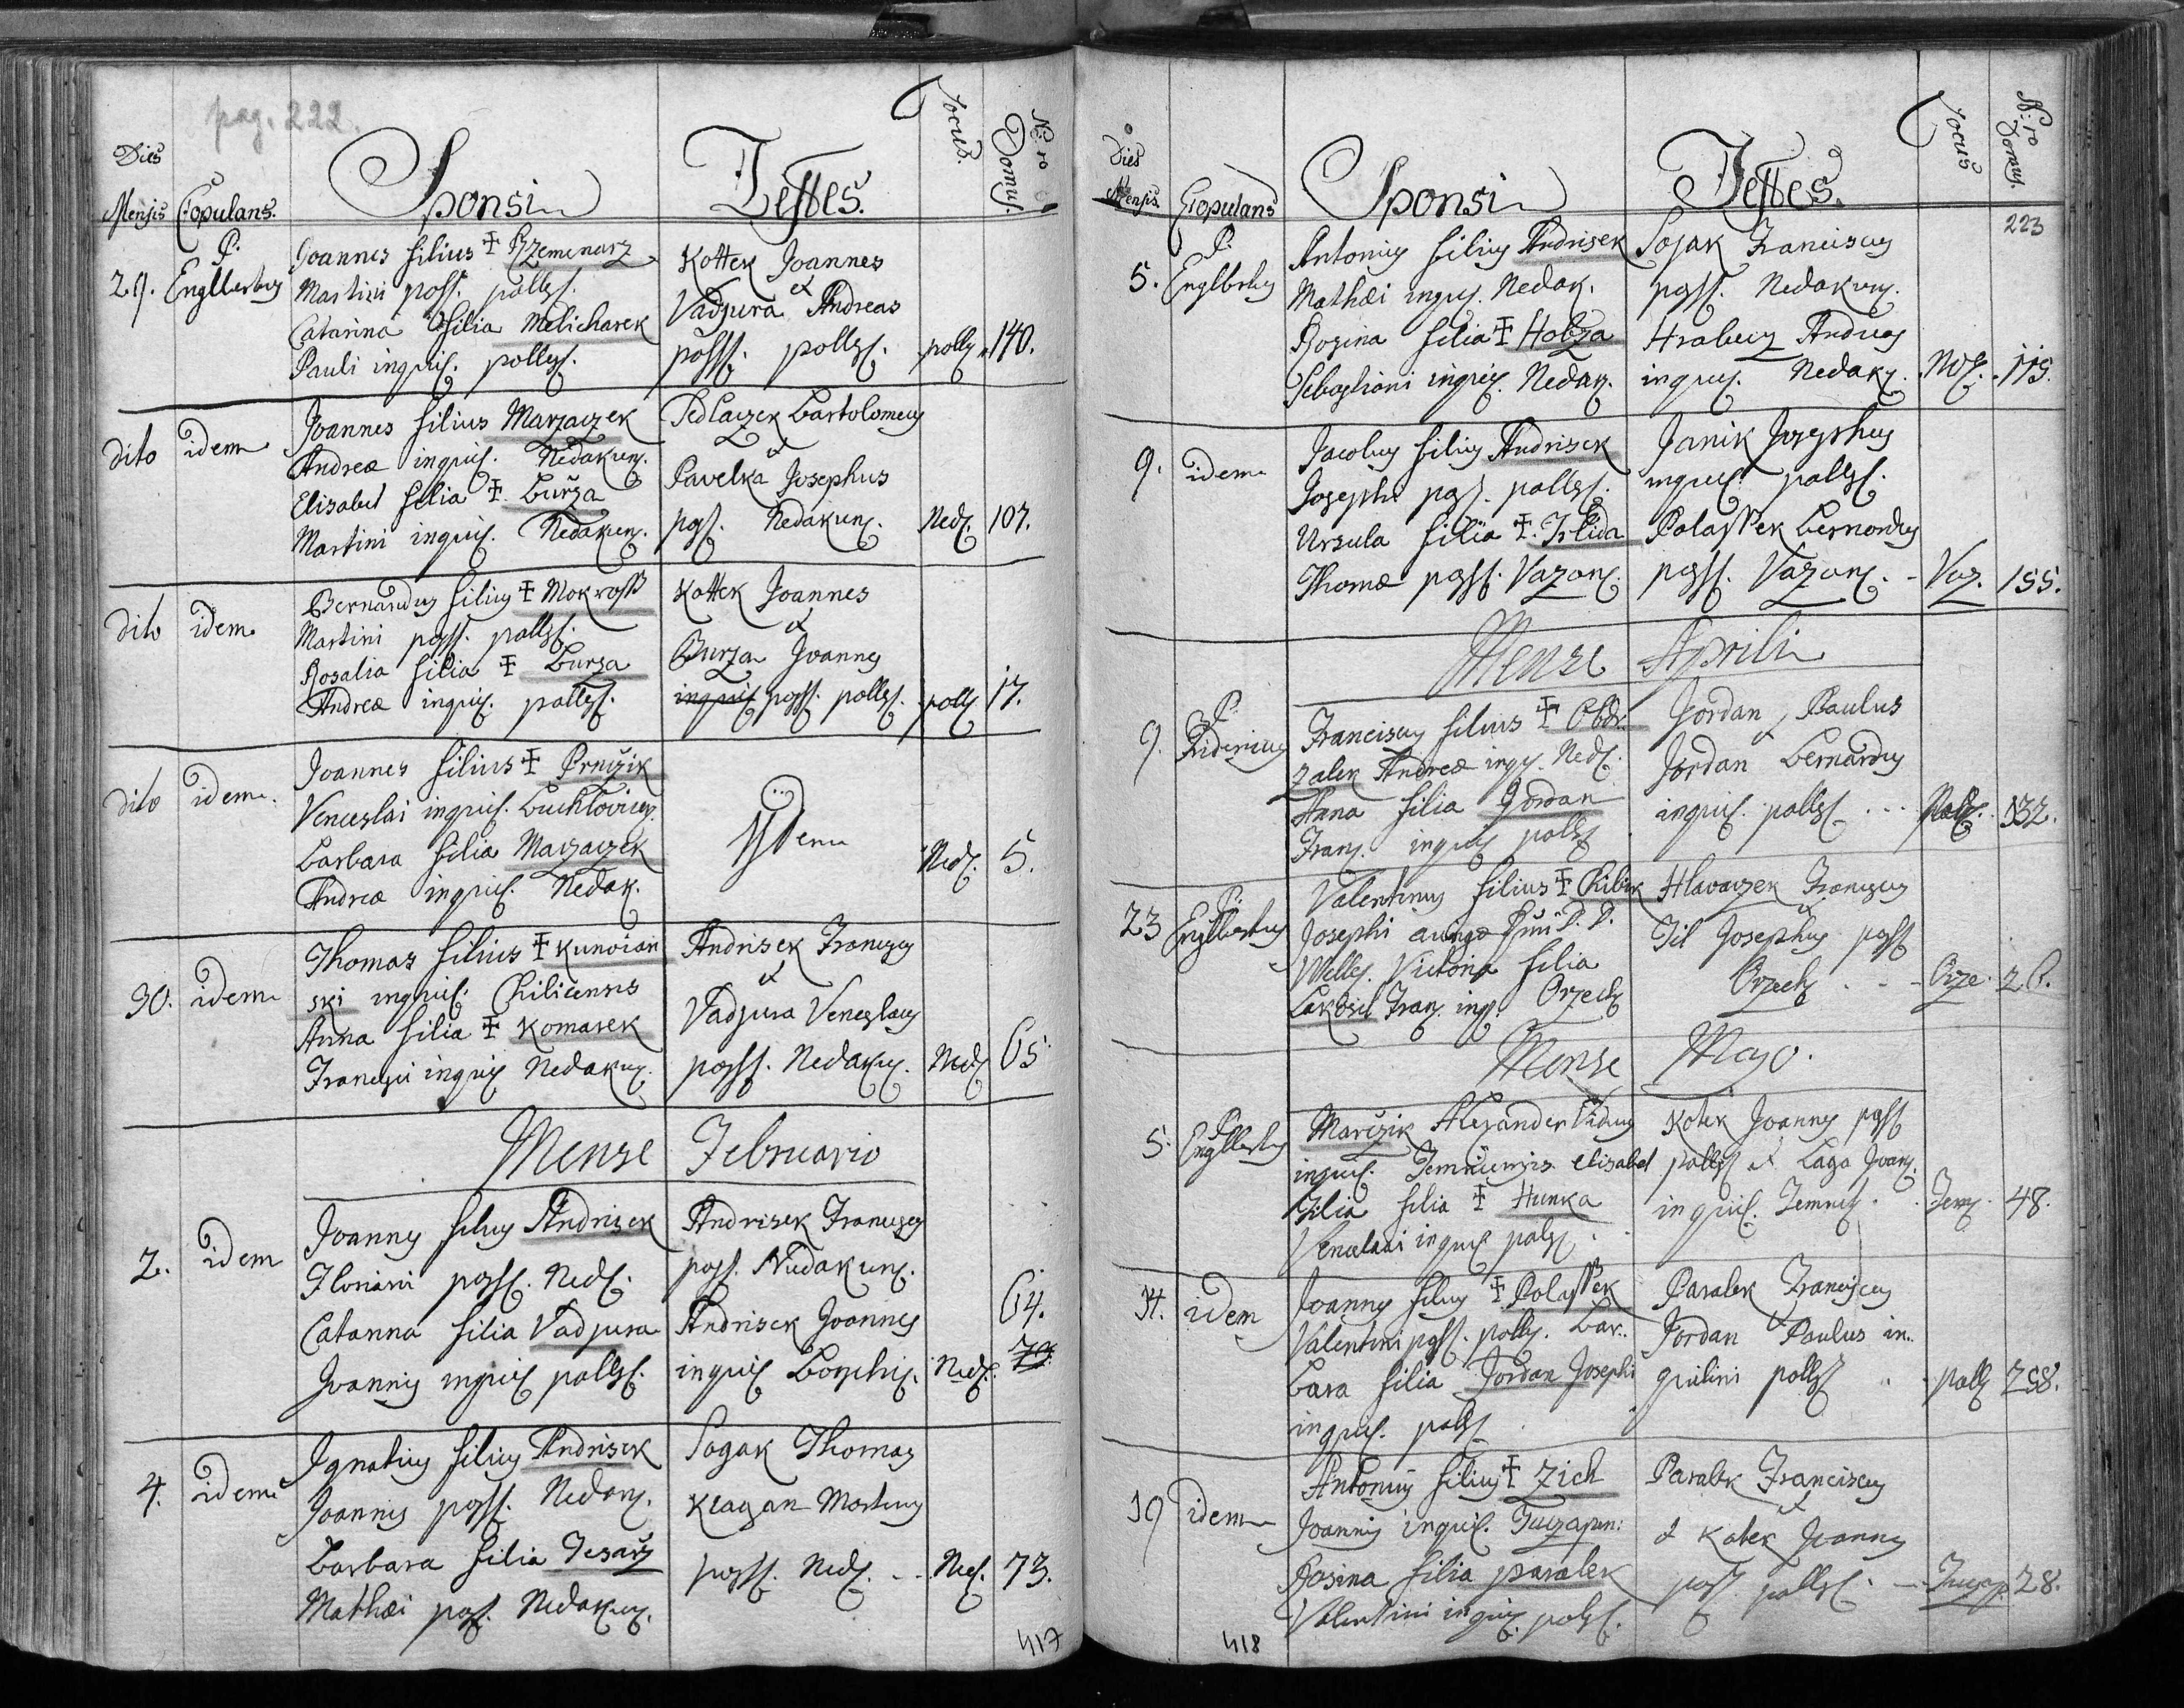 pag. 222.
Dies Mensis
Copulans.
Sponsi
Testes.
Locus.
N: ro Domus.
29. P. Englbertus
Joannes filius ‡ Rzemenarz
Martini poss. pollss.
Catarina filia Melicharek
Pauli inquil. pollss.
Kottek Joannes
et
Vadjura Andreas
possss. pollss.
polls. 140.
dito idem
Joannes filius Marzaczek
Andreæ inquil. Nedakun.
Elisabet filia ‡ Burza
Martini inquil. Nedakun.
Sedlaczek Bartolomeus
et
Pavelka Josephus
pos. Nedakun.
Ned. 107.
dito idem
Bernardus filius ‡ Mokross
Martini poss. pollss.
Rosalia filia ‡ Burza
Andreæ inquil. pollss.
Kottek Joannes
et
Burza Joannes
inquil poss. pollss.
polls 17.
dito idem.
Joannes filius ‡
Venceslai inquil. Buchlovicen.
Barbara filia Marzaczek
Andreæ inquil. Nedak.
Ydem
Ned. 5.
30. idem
Thomas filius ‡ Kunoian
ski inquil. Chilicensis
Anna filia ‡ Komarek
Francisci inquil Nedakun.
Andrisek Franciscus
et
Vadjura Venceslaus
poss. Nedakun.
Ned 65.
Mense Februario
2. idem
Joannes filius Andrisek
Floriani poss. Ned.
Catarina filia Vadjura
Joannis inquil pollss.
Andrisek Franciscus
poss. Nedakun.
Andrisek Joannes
inquil Borschic.
Ned. 64.
4. idem
Ignatius filius Andrisek
Joannis poss. Nedan.
Barbara filia Tesarz
Mathæi pos. Nedakun.
Sogak Thomas
Klagan Martinus
poss. Ned.
Ned. 73.
417
Dies Mensis.
Copulans
Sponsi
Testes.
Locus
N: ro Domus.
223
5. P. Englbertus
Antonius filius Andrisek
Mathæi inquil. Nedak.
Rozina filia ‡ Hobza
Sebastiani inquil. Nedak.
Sojak Franciscus
poss. Nedakun.
Hrabecz Andreas
inquil. Nedak.
Ned. 115.
9. idem
Jacobus filius Andrisek
Josephi pos. pollss.
Ursula filia ‡
Thomæ poss. Vazan.
Janik Josephus
inquil. pollss.
Polassek Bernardus
poss. Vazan.
Vaz. 155.
Mense Aprili
9. P.
Franciscus filius ‡ Obdr.
zalek Andreæ inq. Ned.
Anna filia Jordan
Fran. inquil polls
Jordan Paulus
et
Jordan Bernardus
inquil. pollss
Polls. 132.
23 P. Englbertus
Valentinus filius ‡
Josephi
Welle. Victoria filia
Fran. inq. Orzech
Hlavaczek Franciscus
et
Josephus poss
Orzech
Orze. 26.
Mense Majo.
5. P. Englbertus
Alexander Viduus
inquil. Temnicensis Elisabet
filia ‡ Hunka
Venceslai inquil pols
Kotek Joannes poss
pollss et Joan.
inquil. Temnic.
Tem. 48.
14. idem
Joannes filius ‡ Polassek
Valentini poss. polls. Bar.
bara filia Jordan Josephi
inquil. polss
Paralek Franciscus
et
Jordan Paulus in.
quilini pollss
polls 258.
19 idem
Antonius filius ‡ Zich
Joannis inquil. Tuczapen:
Rosina filia paralek
Valentini inquil. polss.
Paralek Franciscus
et
& Kotek Joannes
poss. pollss.
Tuczap. 28.
418